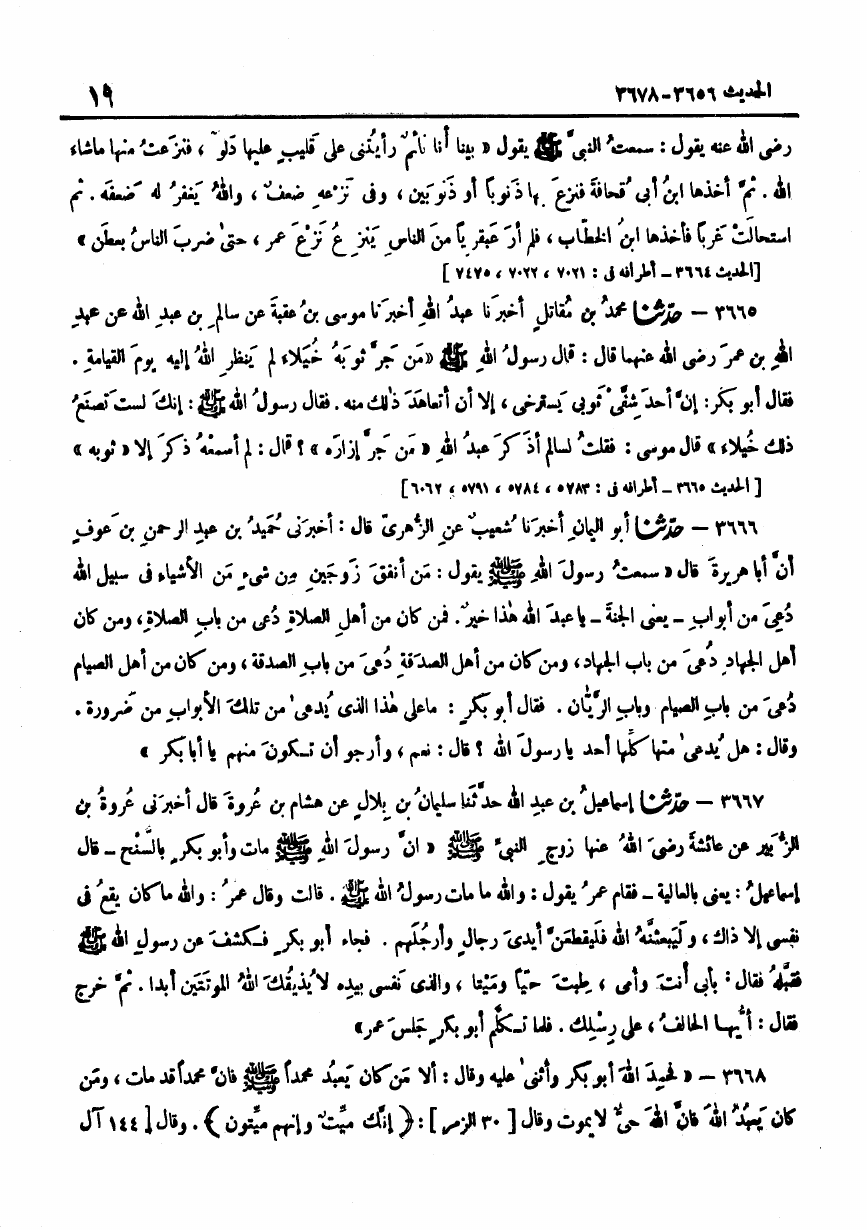 الحديث ٣٦٥٦-٣٦٧٨
١٩
رضى الله عنه يقول : سمعتُ النبيَّ ﷺ يقول « بينا أنا نائمٌ رأيتُنى على قَليبٍ عليها دَلوٌ ، فنزَعتُ منها ماشاء
الله . ثمَّ أخذها ابنُ أبى قُحافةَ فنزعَ بها ذَنوباً أو ذَنوبَين ، وفى نَزْعهِ ضعفٌ ، واللهُ يَغفرُ له ضَعفَه . ثم
استحالَتْ غَرباً فأخذها ابنُ الخطّاب ، فلم أرَ عَبقرِيّاً منَ الناسِ يَنزِعُ نَزْعَ عمر ، حتىٰ ضربَ الناسُ بعطَن »
[ الحديث ٣٦٦٤ – أطرافه فى : ٧٠٢١ ، ٧٠٢٢ ، ٧٤٧٥ ]
٣٦٦٥ – حدّثنا محمدُ بن مُقاتلٍ أخبرَنا عبدُ اللهِ أخبرَنا موسى بنُ عقبةَ عن سالمِ بن عبدِ الله عن عبدِ
اللهِ بن عمرَ رضى الله عنهما قال : قال رسولُ اللهِ ﷺ « مَن جرَّ ثوبَهُ خُيَلاءَ لم يَنظرِ اللهُ إليه يومَ القيامةِ .
فقال أبو بكر: إنَّ أحدَ شِقَّىْ ثوبى يَسترخى ، إلا أن أتعاهَدَ ذٰلك منه. فقال رسولُ الله ﷺ : إنكَ لستَ تَصنَعُ
ذلك خُيَلاء » قال موسى : فقلتُ لسالم أذَكرَ عبدُ اللهِ « مَن جرَّ إزارَه » ؟ قال : لم أسمعْهُ ذكرَ إلا « ثوبه »
[ الحديث ٣٦٦٥ – أطرافه فى : ٥٧٨٣ ، ٥٧٨٤ ، ٥٧٩١ ، ٦٠٦٢ ]
٣٦٦٦ – حدّثنا أبو اليمانِ أخبرَنا شُعيبٌ عنِ الزُّهرىّ قال : أخبرَنى حُمَيدُ بن عبدِ الرحمنِ بن عَوفٍ
أنَّ أبا هريرةَ قال « سمعتُ رسولَ اللهِ ﷺ يقول : مَن أنفقَ زَوجَينِ مِن شىءٍ مَن الأشياء فى سبيلِ الله
دُعِىَ من أبوابِ – يعنى الجنةَ – يا عبدَ الله هٰذا خيرٌ . فمن كان من أهلِ الصلاةِ دُعى من بابِ الصلاة، ومن كان
أهل الجهادِ دُعىَ من باب الجهاد، ومن كان من أهل الصدقةِ دُعىَ من بابِ الصدقة ، ومن كان من أهل الصيام
دُعىَ من بابِ الصيام وبابِ الرَّيّان . فقال أبو بكرٍ : ماعلى هٰذا الذى يُدعىٰ من تلكَ الأبوابِ من ضَرورة .
وقال : هل يُدعىٰ منها كلِّها أحد يا رسولَ الله ؟ قال : نعم ، وأرجو أن تكونَ منهم يا أبا بكر »
٣٦٦٧ – حدّثنا إسماعيلُ بن عبدِ الله حدَّثَنا سليمانُ بن بِلالٍ عن هشام بن عُروةَ قال أخبرَنى عُروةُ بن
الزُّبَير عن عائشةَ رضىَ اللهُ عنها زوجِ النبيِّ ﷺ « انَّ رسولَ اللهِ ﷺ مات وأبو بكرٍ بالسُّنْح – قال
إسماعيلُ : يعنى بالعالية – فقام عمرُ يقول : والله ما مات رسولُ الله ﷺ . قالت وقال عمرُ : والله ما كان يقعُ فى
نفسى إلا ذاك ، ولَيبعثنَّهُ الله فلَيقطعَنَّ أيدىَ رجالٍ وأرجُلَهم . فجاء أبو بكرٍ فكشفَ عن رسولِ الله ﷺ
فقبَّلَهُ فقال : بأبى أنتَ وأمى ، طِبتَ حيّاً ومَيتا ، والذى نَفسى بيدِه لا يُذيقُكَ اللهُ الموتَتَينِ أبدا . ثمَّ خرج
فقال : أيُّها الحالفُ ، على رِسْلِك . فلما تكلَّم أبو بكرٍ جَلسَ عمر »
٣٦٦٨ – « فحمِدَ اللهَ أبو بكر وأثنىٰ عليه وقال : ألا مَن كان يَعبُد محمداً ﷺ فانَّ محمداً قد مات ، ومَن
كان يَعبُدُ اللهَ فانَّ اللهَ حىٌّ لا يموت وقال [ ٣٠ الزمر ] : ﴿ إنَّك ميِّتٌ وإنهم ميِّتون ﴾ . وقال [ ١٤٤ آل